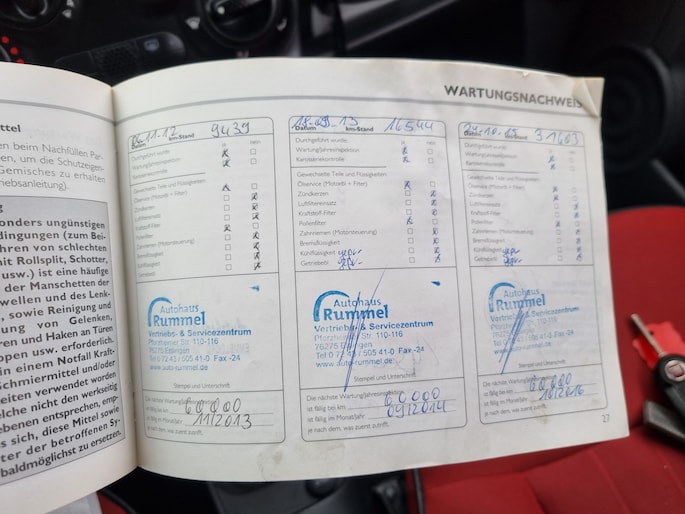 ttel
en beim Nachfüllen Par-
en, um die Schutzeigen-
Gemisches zu erhalten
riebsanleitung).
g
sonders ungünstigen
dingungen (zum Bei-
hren von schlechten
nit Rollsplit, Schotter,
usw.) ist eine häufige
der Manschetten der
wellen und des Lenk-
, sowie Reinigung und
ung von Gelenken,
ren und Haken an Türen
ppen usw. erforderlich.
in einem Notfall Kraft-
Schmiermittel und/oder
eiten verwendet worden
elche nicht den werkseitig
ebenen entsprechen, emp-
s sich, diese Mittel sowie
ter der betroffenen Sy-
baldmöglichst zu ersetzen.
WARTUNGSNACHWEIS
11-12 km-Stand 9439
Durchgeführt wurde: nein
Wartung/Jahresinspektion
Karosseriekontrolle
Gewechselte Teile und Flüssigkeiten:
Ölservice (Motoröl + Filter)
Zündkerzen
Luftfiltereinsatz
Kraftstoff-Filter
Pollenfilter
Zahnriemen (Motorsteuerung)
Bremsflüssigkeit
Kühlflüssigkeit
Getriebeöl
Autohaus
Rummel
Vertriebs- & Servicezentrum
Pforzheimer Str. 110-116
76275 Ettlingen
Tel 0 72 43 / 505 41-0 Fax -24
www.auto-rummel.de
Stempel und Unterschrift
Die nächste Wartung/Jahresinspektion
ist fällig bei km 60000
ist fällig im Monat/Jahr 11/2013
je nach dem, was zuerst zutrifft.
Datum 13 km-Stand 16544
Durchgeführt wurde: nein
Wartung/Jahresinspektion
Karosseriekontrolle
Gewechselte Teile und Flüssigkeiten:
Ölservice (Motoröl + Filter)
Zündkerzen
Luftfiltereinsatz
Kraftstoff-Filter
Pollenfilter
Zahnriemen (Motorsteuerung)
Bremsflüssigkeit
Kühlflüssigkeit gepr.
Getriebeöl gepr.
Autohaus
Rummel
Vertriebs- & Servicezentrum
Pforzheimer Str. 110-116
76275 Ettlingen
Tel 0 72 43 / 505 41-0 Fax -24
www.auto-rummel.de
Stempel und Unterschrift
Die nächste Wartung/Jahresinspektion
ist fällig bei km 60000
ist fällig im Monat/Jahr 09/2014
je nach dem, was zuerst zutrifft.
Datum km-Stand 31603
Durchgeführt wurde: nein
Wartung/Jahresinspektion
Karosseriekontrolle
Gewechselte Teile und Flüssigkeiten:
Ölservice (Motoröl + Filter)
Zündkerzen
Luftfiltereinsatz
Kraftstoff-Filter
Pollenfilter
Zahnriemen (Motorsteuerung)
Bremsflüssigkeit
Kühlflüssigkeit gepr.
Getriebeöl gepr.
Autohaus
Rummel
Vertriebs- & Servicezentrum
Pforzheimer Str. 110-116
76275 Ettlingen
Tel 0 72 43 / 505 41-0 Fax -24
www.auto-rummel.de
Stempel und Unterschrift
Die nächste Wartung/Jahresinspektion
ist fällig bei km 60000
ist fällig im Monat/Jahr 10/2016
je nach dem, was zuerst zutrifft.
27